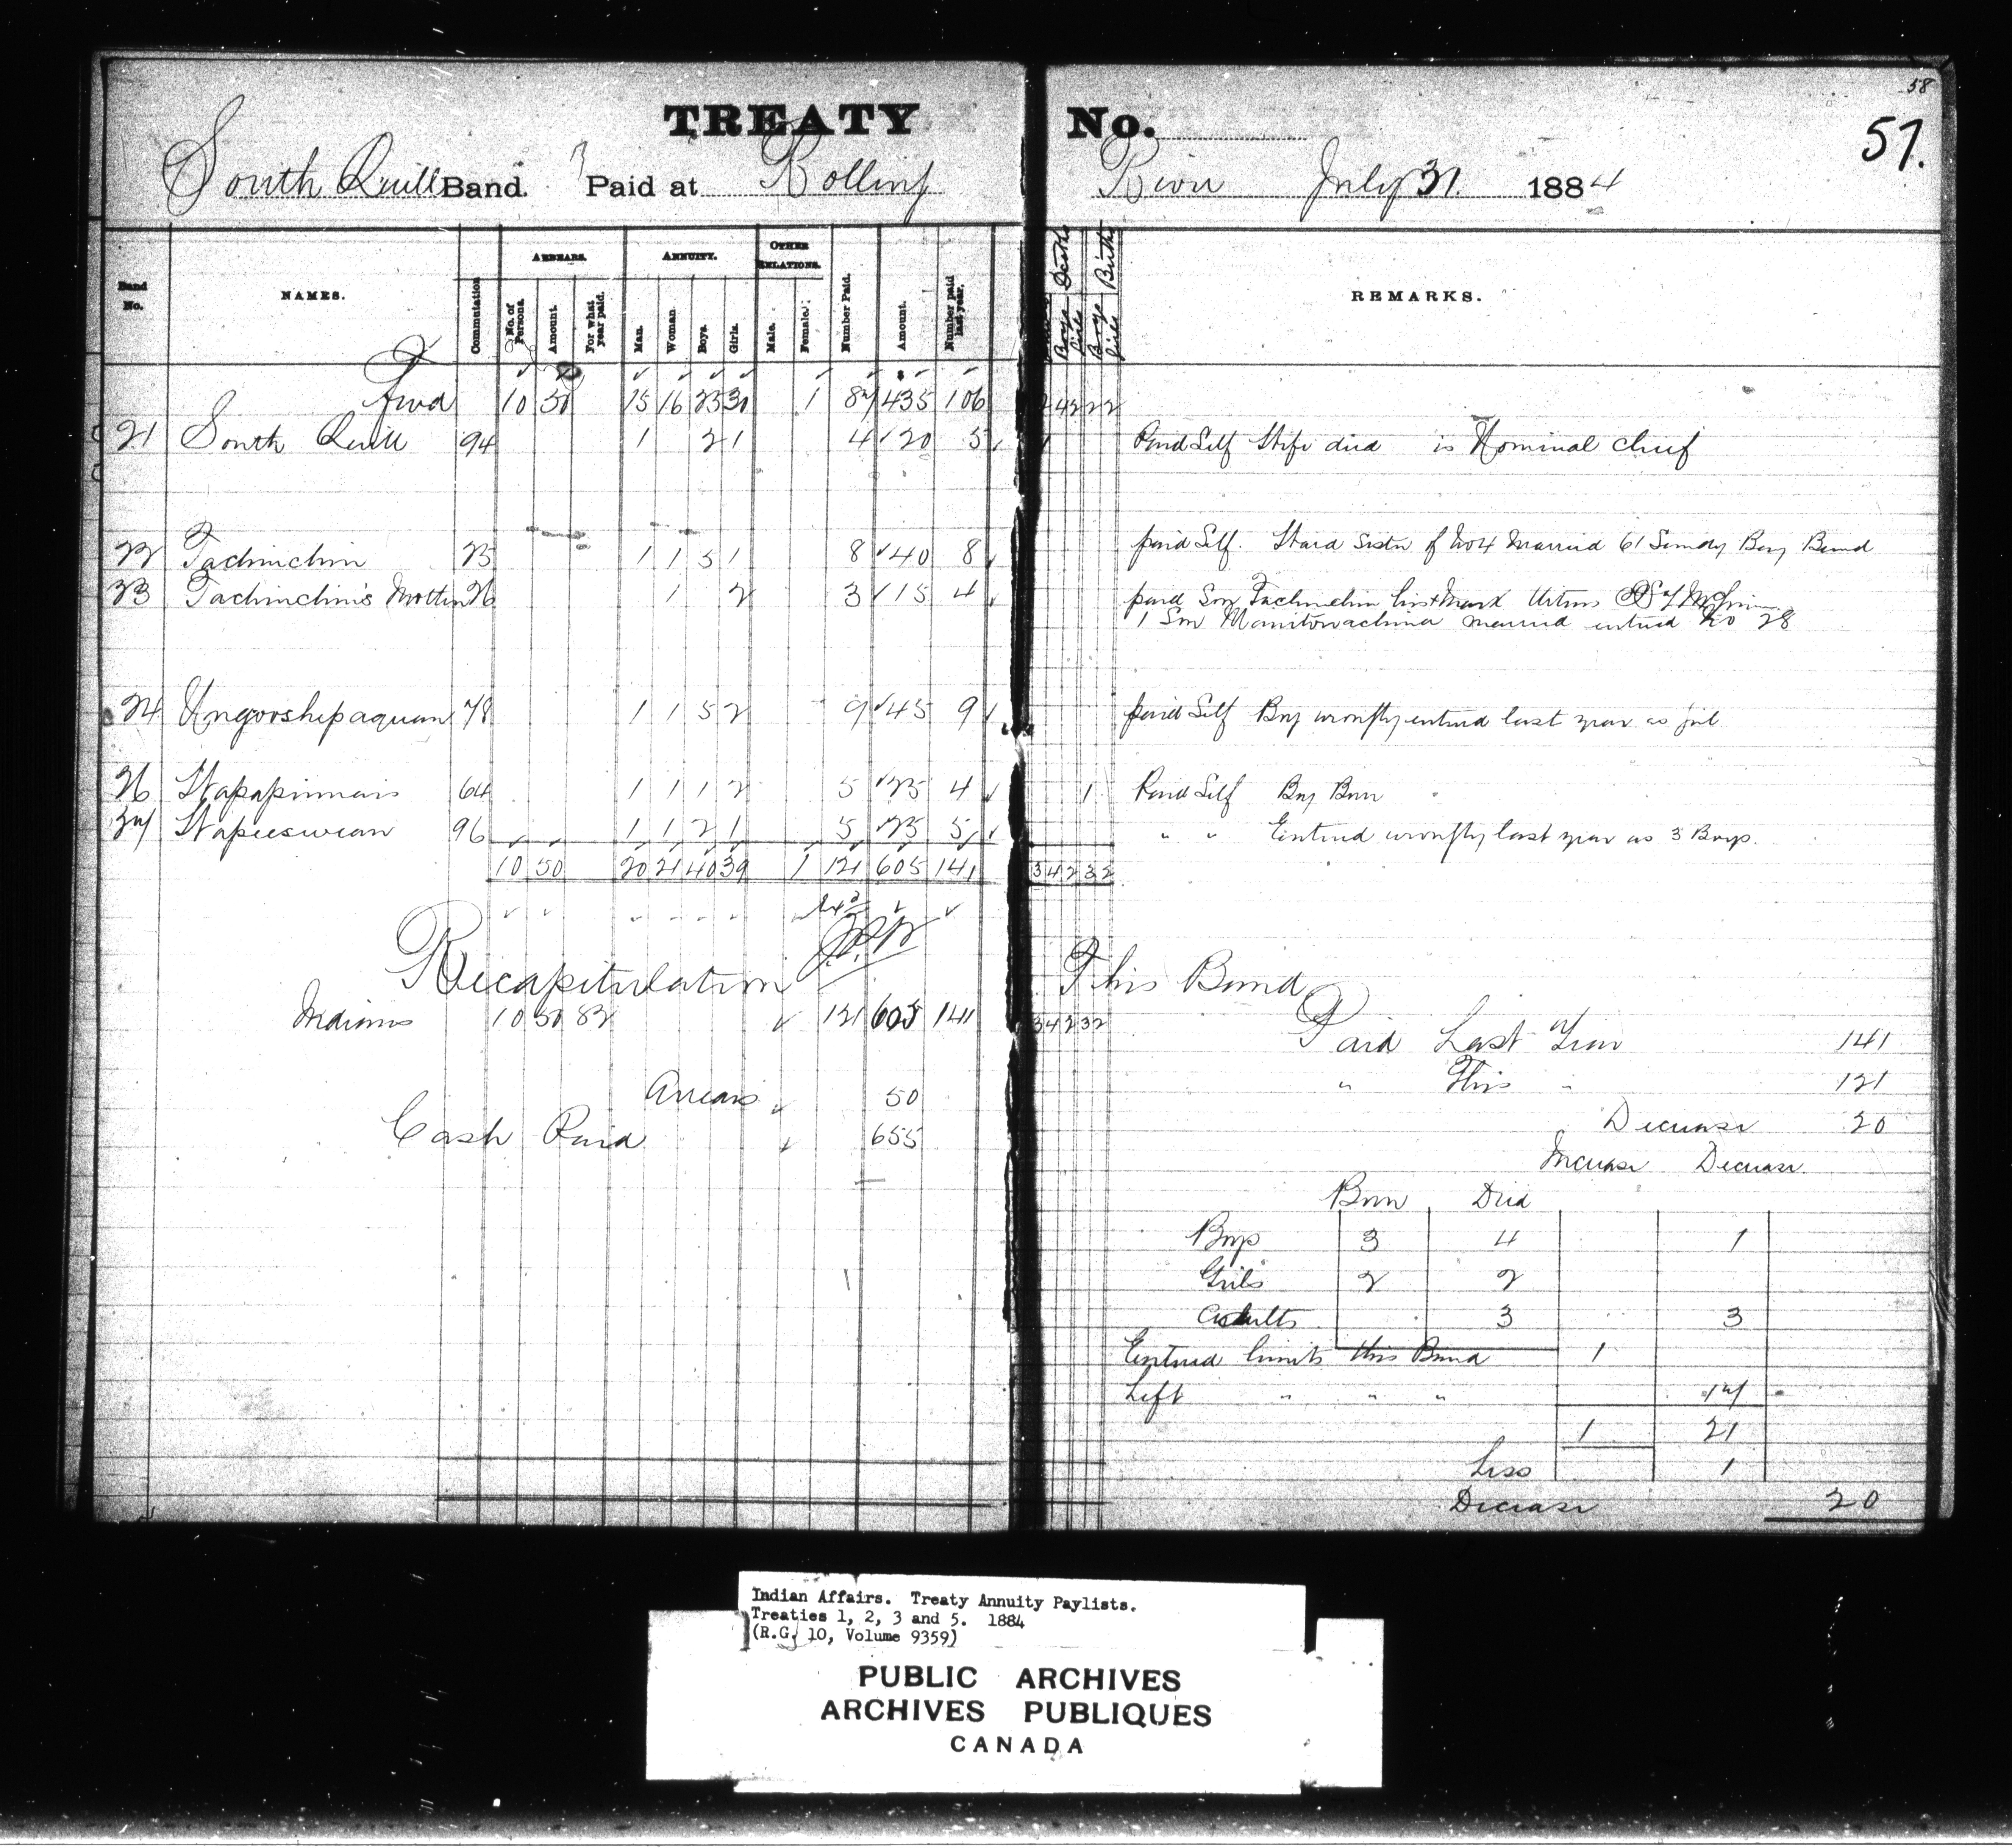 58
TREATY No. 57.
South Quill Band. Paid at Rolling River July 31. 1884
Band No. NAMES. Commutation ARREARS. No. of Persons. Amount. For what year paid. ANNUITY. Man. Woman Boys. Girls. OTHER RELATIONS. Male. Female. Number Paid. Amount. Number paid last year. Boys Girls Deaths Boys Girls Births REMARKS.
Fwd 10 50 15 16 23 30 1 87 435 106 2 4 2 2 2
21 South Quill 94 1 2 1 4 20 5 1 Paid Self Wife died is Nominal Chief
22 Tachinchin 23 1 1 5 1 8 40 8 paid Self. Ward Sister of No 4 Married 61 Sandy Bay Band
23 Tachinchin's Mother 26 1 2 3 15 4 paid Son Tachinchin his x mark
1 Son Manitowachina married entered No 28
24 Ungooshepaquam 78 1 1 5 2 9 45 9 paid Self Boy wrongly entered last year as girl
26 Wapapinnais 64 1 1 1 2 5 25 4 1 Paid Self Boy Born
27 Wapeeswean 96 1 1 2 1 5 25 5 " " Entered wrongly last year as 3 Boys.
10 50 20 21 40 39 1 121 605 141 3 4 2 3 2
Recapitulation This Band
Indians 10 50 82 121 605 141 3 4 2 3 2
Paid Last Year 141
Arrears 50 " This " 121
Cash Paid 655 Decrease 20
Increase Decrease.
Born Died
Boys 3 4 1
Girls 2 2
Adults 3 3
Entered limits this Band 1
Left " " " 17
1 21
Less 1
Decrease 20
Indian Affairs. Treaty Annuity Paylists.
Treaties 1, 2, 3 and 5. 1884
(R.G. 10, Volume 9359)
PUBLIC ARCHIVES
ARCHIVES PUBLIQUES
CANADA